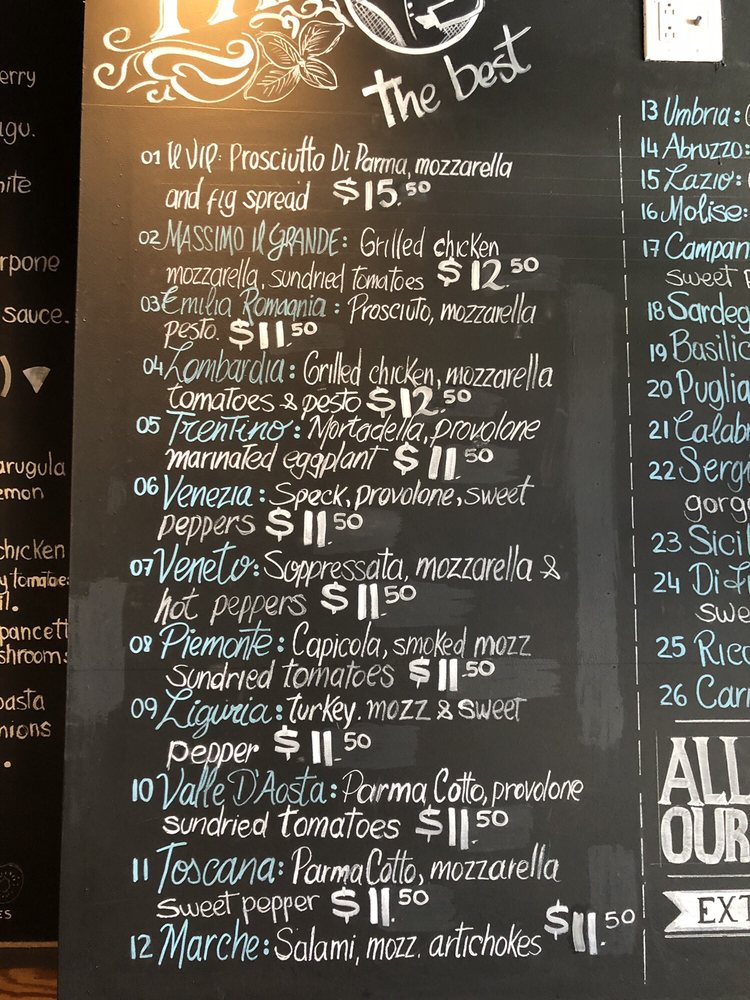 The best
01 Il VIP: Prosciutto Di Parma, mozzarella
and fig spread $15.50
02 MASSIMO Il GRANDE: Grilled chicken
mozzarella, sundried tomatoes $12.50
03 Emilia Romagnia: Prosciuto, mozzarella
pesto. $11.50
04 Lombardia: Grilled chicken, mozzarella
tomatoes & pesto $12.50
05 Trentino: Mortadella, provolone
marinated eggplant $11.50
06 Venezia: Speck, provolone, sweet
peppers $11.50
07 Veneto: Soppressata, mozzarella &
hot peppers $11.50
08 Piemonte: Capicola, smoked mozz
Sundried tomatoes $11.50
09 Liguria: Turkey. mozz & sweet
pepper $11.50
10 Valle D'Aosta: Parma Cotto, provolone
sundried tomatoes $11.50
11 Toscana: Parma Cotto, mozzarella
sweet pepper $11.50
12 Marche: Salami, mozz. artichokes $11.50
13 Umbria:
14 Abruzzo:
15 Lazio:
16 Molise:
17 Campan
sweet
18 Sardeg
19 Basilic
20 Puglia
21 Calab
22 Serg
gorg
23 Sicil
24 Di
swe
25 Rico
26
ALL
OUR
EXT
erry
agu.
hite
rpone
sauce.
arugula
emon
chicken
y tomatoe
il.
pancett
shrooms
pasta
nions
ES